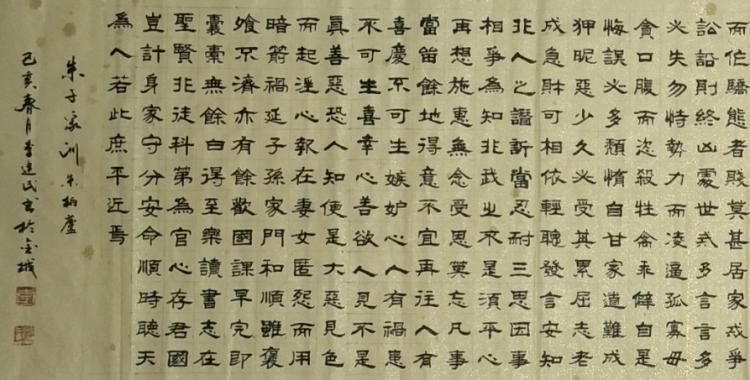 而作驕態者賤莫甚居家戒爭
訟訟則終凶處世戒多言言多
必失勿恃勢力而凌逼孤寡毋
貪口腹而恣殺牲禽乖僻自是
悔誤必多頹惰自甘家道難成
狎昵惡少久必受其累屈志老
成急則可相依輕聽發言安知
非人之譖訴當忍耐三思因事
相爭為知非我之不是須平心
再想施惠無念受恩莫忘凡事
當留餘地得意不宜再往人有
喜慶不可生嫉妒心人有禍患
不可生喜幸心善欲人見不是
真善惡恐人知便是大惡見色
而起淫心報在妻女匿怨而用
暗箭禍延子孫家門和順雖饔
飧不濟亦有餘歡國課早完即
囊橐無餘自得至樂讀書志在
聖賢非徒科第為官心存君國
豈計身家守分安命順時聽天
為人若此庶乎近焉
朱子家训 朱柏廬
己亥春月李達民書於金城